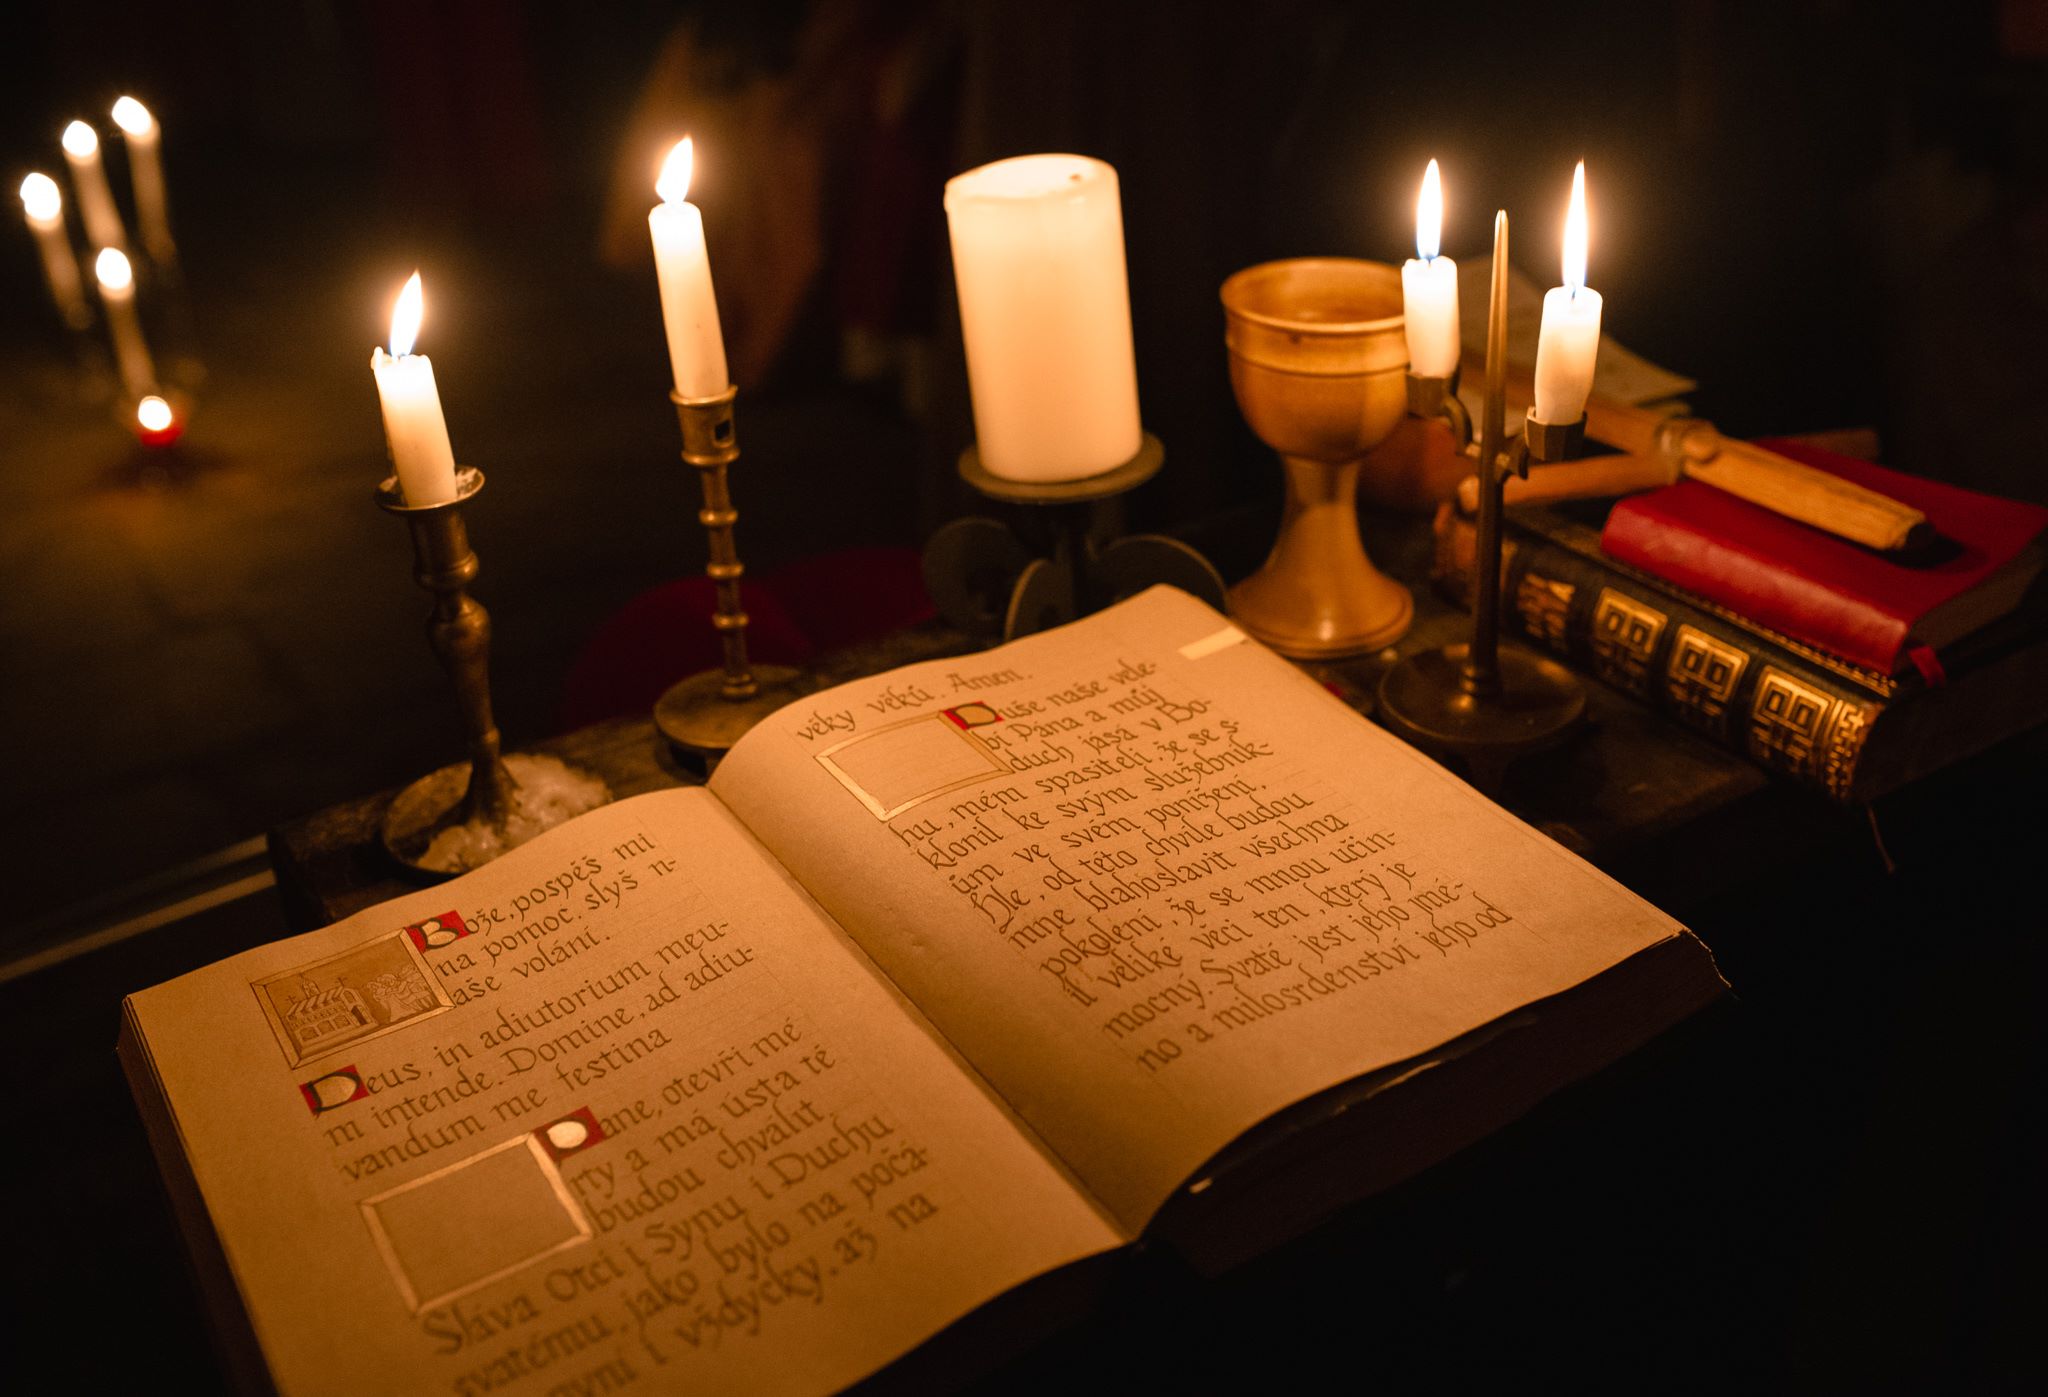 Bože, pospěš mi
na pomoc. slyš n-
aše volání.
Deus, in adiutorium meu-
m intende. Domine, ad adiu-
vandum me festina
Pane, otevři mé
rty a má ústa tě
budou chválit
Sláva Otci i Synu i Duchu
svatému, jako bylo na počá-
nyní i vždycky, až na
věky věků. Amen.
Duše naše vele-
bí Pána a můj
duch jásá v Bo-
hu, mém spasiteli, že se s-
klonil ke svým služebník-
ům ve svém ponížení.
Hle, od této chvíle budou
mne blahoslavit všechna
pokolení, že se mnou učin-
il veliké věci ten, který je
mocný. Svaté jest jeho jmé-
no a milosrdenství jeho od